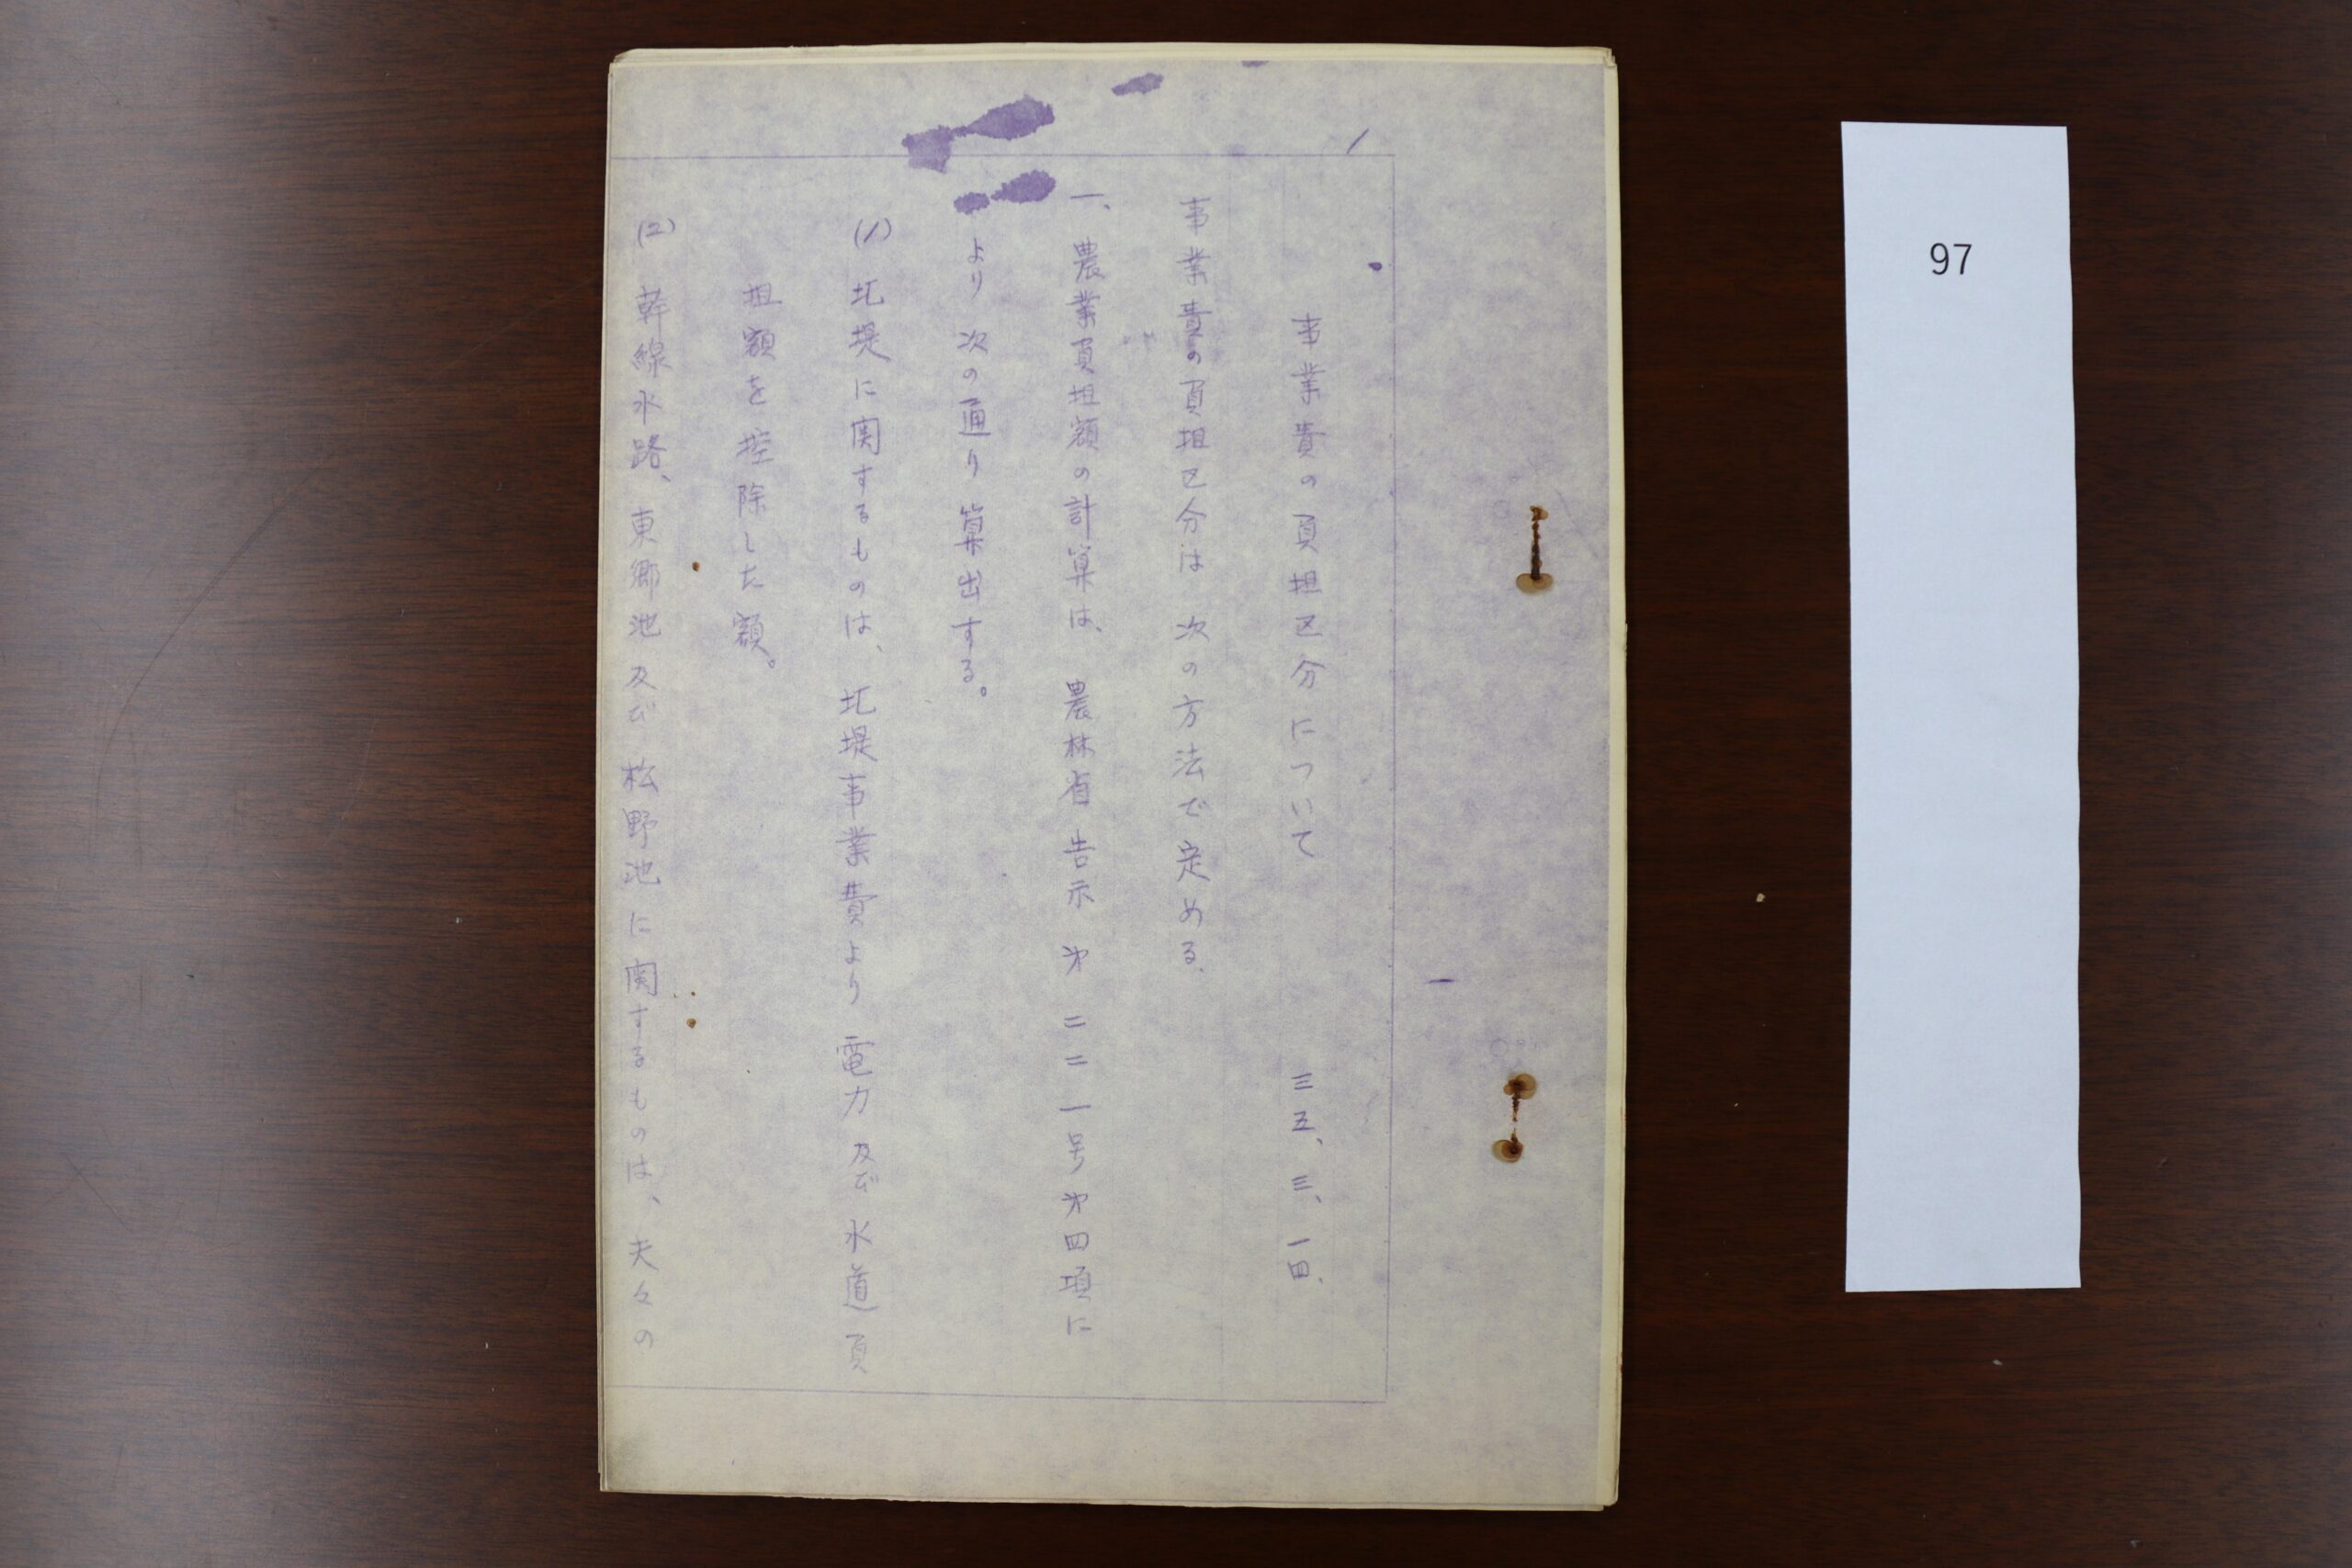 1
事業費の負担区分について 三五、三、一四、
事業費の負担区分は次の方法で定める、
一、農業負担額の計算は、農林省告示㐧二二一号㐧四項に
より次の通り算出する。
(1) 圠堤に関するものは、圠堤事業費より電力及び水道負
担額を控除した額。
(2) 幹線水路、東郷池及び松野池に関するものは、夫々の
97